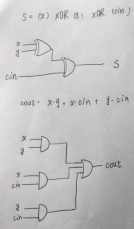 S = (x) XOR (y) XOR (cin)
x
y
cin
S
cout = x·y + x·cin + y·cin
x
y
x
cin
cout
y
cin